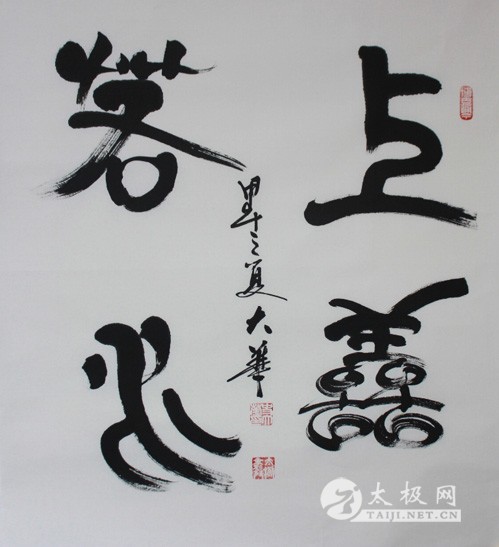 上善
若水
甲午之夏大華
太极网
TAIJI.NET.CN